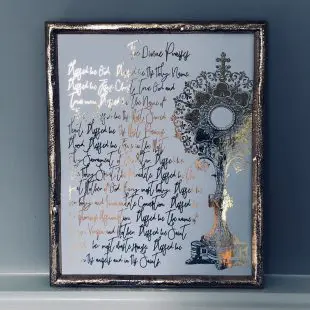 The Divine Praises
Blessed be God. Blessed be His Holy Name
Blessed be Jesus Christ True God and
True man. Blessed be The Name of
Blessed be His Most
Heart. Blessed be His Most Precious
Blood. Blessed be Jesus in the Most
Holy Sacrament of the Altar. Blessed be
the Holy Spirit the Paraclete. Blessed be
the great Mother of God Mary most holy. Blessed
be her holy and Immaculate Conception. Blessed
be her Glorious Assumption. Blessed be The name of
Mary Virgin and Mother. Blessed be Saint
Joseph her most chaste spouse. Blessed be
God in His angels and in His Saints.